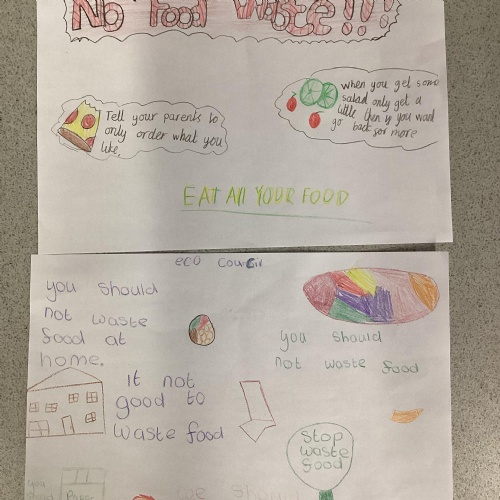 No Food Waste!!!
Tell your parents to
only order what you
like.
when you get some
salad only get a
little then if you want
go back for more
EAT All YOUR FOOD
eco Council
you should
not waste
food at
home.
you should
not waste food
It not
good to
waste food
Stop
waste
food
we should